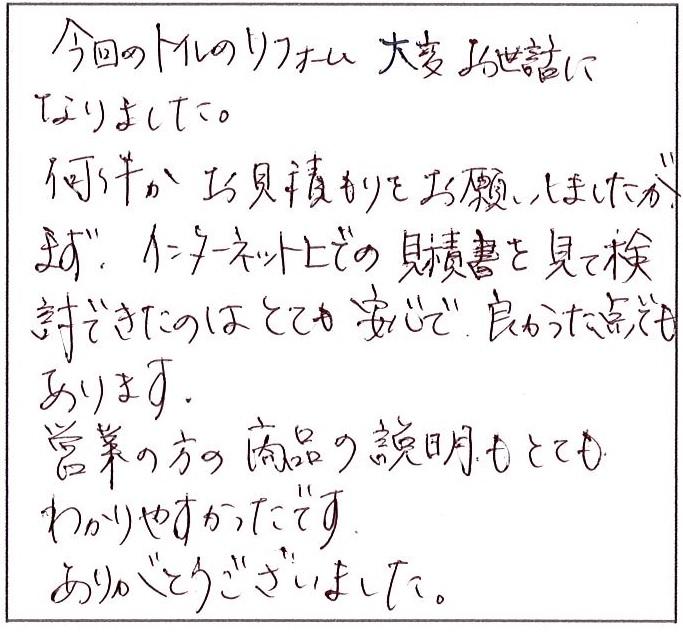 今回のトイレのリフォーム 大変お世話に
なりました。
何件か お見積もりをお願いしましたが、
まず、インターネット上での見積書を見て検
討できたのはとても安心で、良かった点でも
あります。
営業の方の商品の説明もとても
わかりやすかったです。
ありがとうございました。